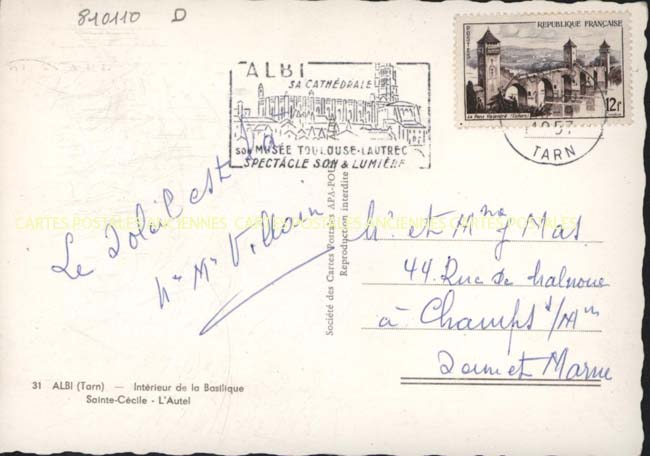 810110 D
ALBI
SA CATHÉDRALE
son MUSÉE TOULOUSE-LAUTREC
SPECTACLE SON & LUMIÈRE
REPUBLIQUE FRANÇAISE
POSTES
12F
Le Pont Valentré (Cahors)
1957
TARN
Le Soleil est là
Mr Mme Villain
CARTES POSTALES ANCIENNES CARTES POSTALES ANCIENNES CARTES POSTALES ANCIENNES
Société des Cartes Postales APA-POUX
Reproduction interdite
M. et Mme Mas
44 Rue de Malnoue
à Champs s/Mne
Seine et Marne
31 ALBI (Tarn) — Intérieur de la Basilique
Sainte-Cécile - L'Autel